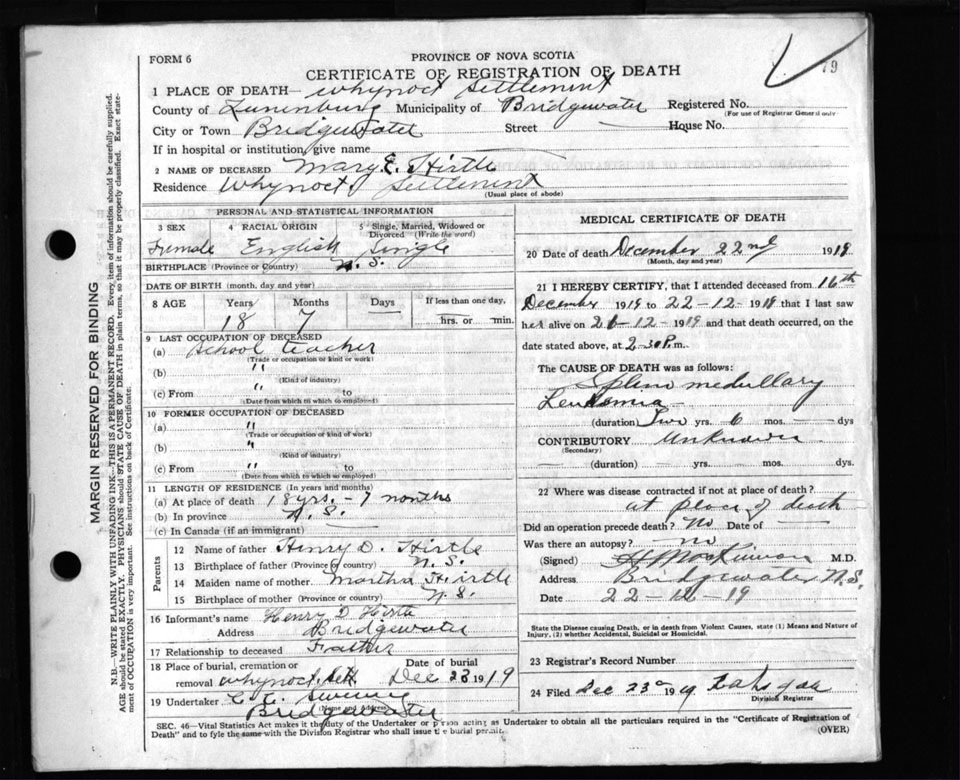 79
FORM 6
PROVINCE OF NOVA SCOTIA
CERTIFICATE OF REGISTRATION OF DEATH
1 PLACE OF DEATH— Whynoct Settlement
County of Lunenburg Municipality of Bridgewater Registered No.
(For use of Registrar General only
City or Town Bridgewater Street — House No.
If in hospital or institution, give name —
2 NAME OF DECEASED Mary E. Hirtle
Residence Whynoct Settlement
(Usual place of abode)
PERSONAL AND STATISTICAL INFORMATION
3 SEX 4 RACIAL ORIGIN 5 Single, Married, Widowed or Divorced (Write the word)
Female English Single
BIRTHPLACE (Province or Country) N. S.
DATE OF BIRTH (month, day and year)
8 AGE Years Months Days If less than one day,
18 7 — hrs. or min.
9 LAST OCCUPATION OF DECEASED
(a) School teacher
(Trade or occupation or kind of work)
(b) "
(Kind of industry)
(c) From " to
(Date from which to which so employed)
10 FORMER OCCUPATION OF DECEASED
(a) "
(Trade or occupation or kind of work)
(b) "
(Kind of industry)
(c) From " to
(Date from which to which so employed)
11 LENGTH OF RESIDENCE (In years and months)
(a) At place of death 18 yrs. - 7 months
(b) In province N. S.
(c) In Canada (if an immigrant) —
Parents
12 Name of father Henry D. Hirtle
13 Birthplace of father (Province or Country) N. S.
14 Maiden name of mother Martha Hirtle
15 Birthplace of mother N. S.
16 Informant's name Henry D Hirtle
Address Bridgewater
17 Relationship to deceased Father
18 Place of burial, cremation or Date of burial
removal Whynoct Sett. Dec 23 1919
19 Undertaker Sweeny
(Name and Address)
Bridgewater
MEDICAL CERTIFICATE OF DEATH
20 Date of death December 22nd 1919
(Month, day and year)
21 I HEREBY CERTIFY, that I attended deceased from 16th
December 1919 to 22-12-1919 that I last saw
her alive on 21-12-1919 and that death occurred, on the
date stated above, at 2-30 P.m.
The CAUSE OF DEATH was as follows:
Spleno medullary
Leukemia
(duration) Two yrs. 6 mos. — dys
CONTRIBUTORY Unknown
(Secondary)
— (duration) — yrs. — mos. — dys.
22 Where was disease contracted if not at place of death?
at place of death
Did an operation precede death? No Date of —
Was there an autopsy? No
(Signed) M.D.
Address Bridgewater N.S.
Date 22-12-19
State the Disease causing Death, or in death from Violent Causes, state (1) Means and Nature of
Injury, (2) whether Accidental, Suicidal or Homicidal.
23 Registrar's Record Number
24 Filed Dec 23 1919
Division Registrar
SEC. 46—Vital Statistics Act makes it the duty of the Undertaker or person acting as Undertaker to obtain all the particulars required in the "Certificate of Registration of
Death" and to fyle the same with the Division Registrar who shall issue the burial permit.
(OVER)
MARGIN RESERVED FOR BINDING
N.B.—WRITE PLAINLY WITH UNFADING INK—THIS IS A PERMANENT RECORD. Every item of information should be carefully supplied.
AGE should be stated EXACTLY. PHYSICIANS should STATE CAUSE OF DEATH in plain terms, so that it may be properly classified. Exact state-
ment of OCCUPATION is very important. See instructions on back of Certificate.